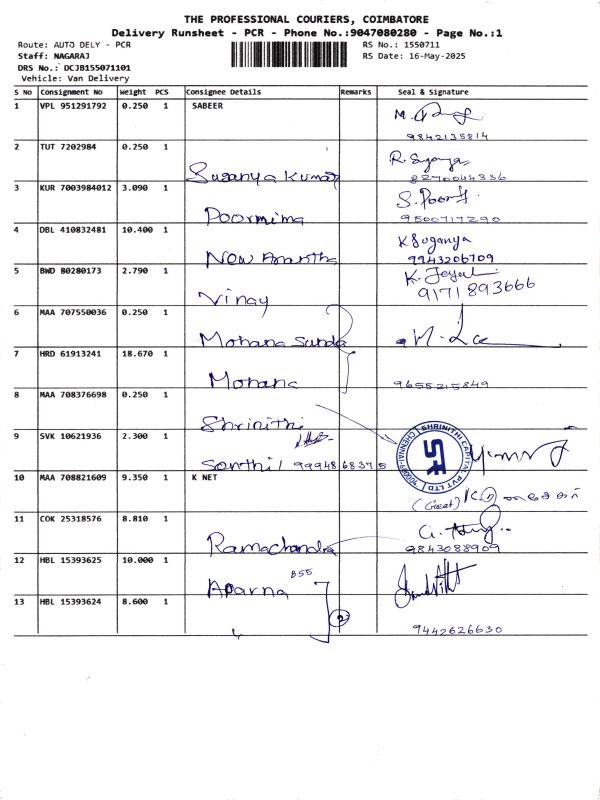 THE PROFESSIONAL COURIERS, COIMBATORE
Delivery Runsheet - PCR - Phone No.:9047080280 - Page No.:1
Route: AUTO DELY - PCR
RS No.: 1550711
Staff: NAGARAJ
RS Date: 16-May-2025
DRS No.: DCJB155071101
Vehicle: Van Delivery
S No Consignment No Weight PCS Consignee Details Remarks Seal & Signature
1 VPL 951291792 0.250 1 SABEER
9842135814
2 TUT 7202984 0.250 1 Suganya Kumar R. Suganya
8270044336
3 KUR 7003984012 3.090 1 Poornima S. Poor
9500717290
4 DBL 410832481 10.400 1 New Anantha K Suganya
9943206709
5 BWD 80280173 2.790 1 Vinay K. Jeyal
9171893666
6 MAA 707550036 0.250 1 Mohana Sunda
7 HRD 61913241 18.670 1 Mohana 9655215849
8 MAA 708376698 0.250 1 Shrinithi
SHRINITHI CAPITAL PVT LTD
9 SVK 10621936 2.300 1 Santhil 9994868375
10 MAA 708821609 9.350 1 K NET
(Great)
11 COK 25318576 8.810 1 Ramachandra
9843088909
12 HBL 15393625 10.000 1 Aparna 855
13 HBL 15393624 8.600 1 2
9442626630